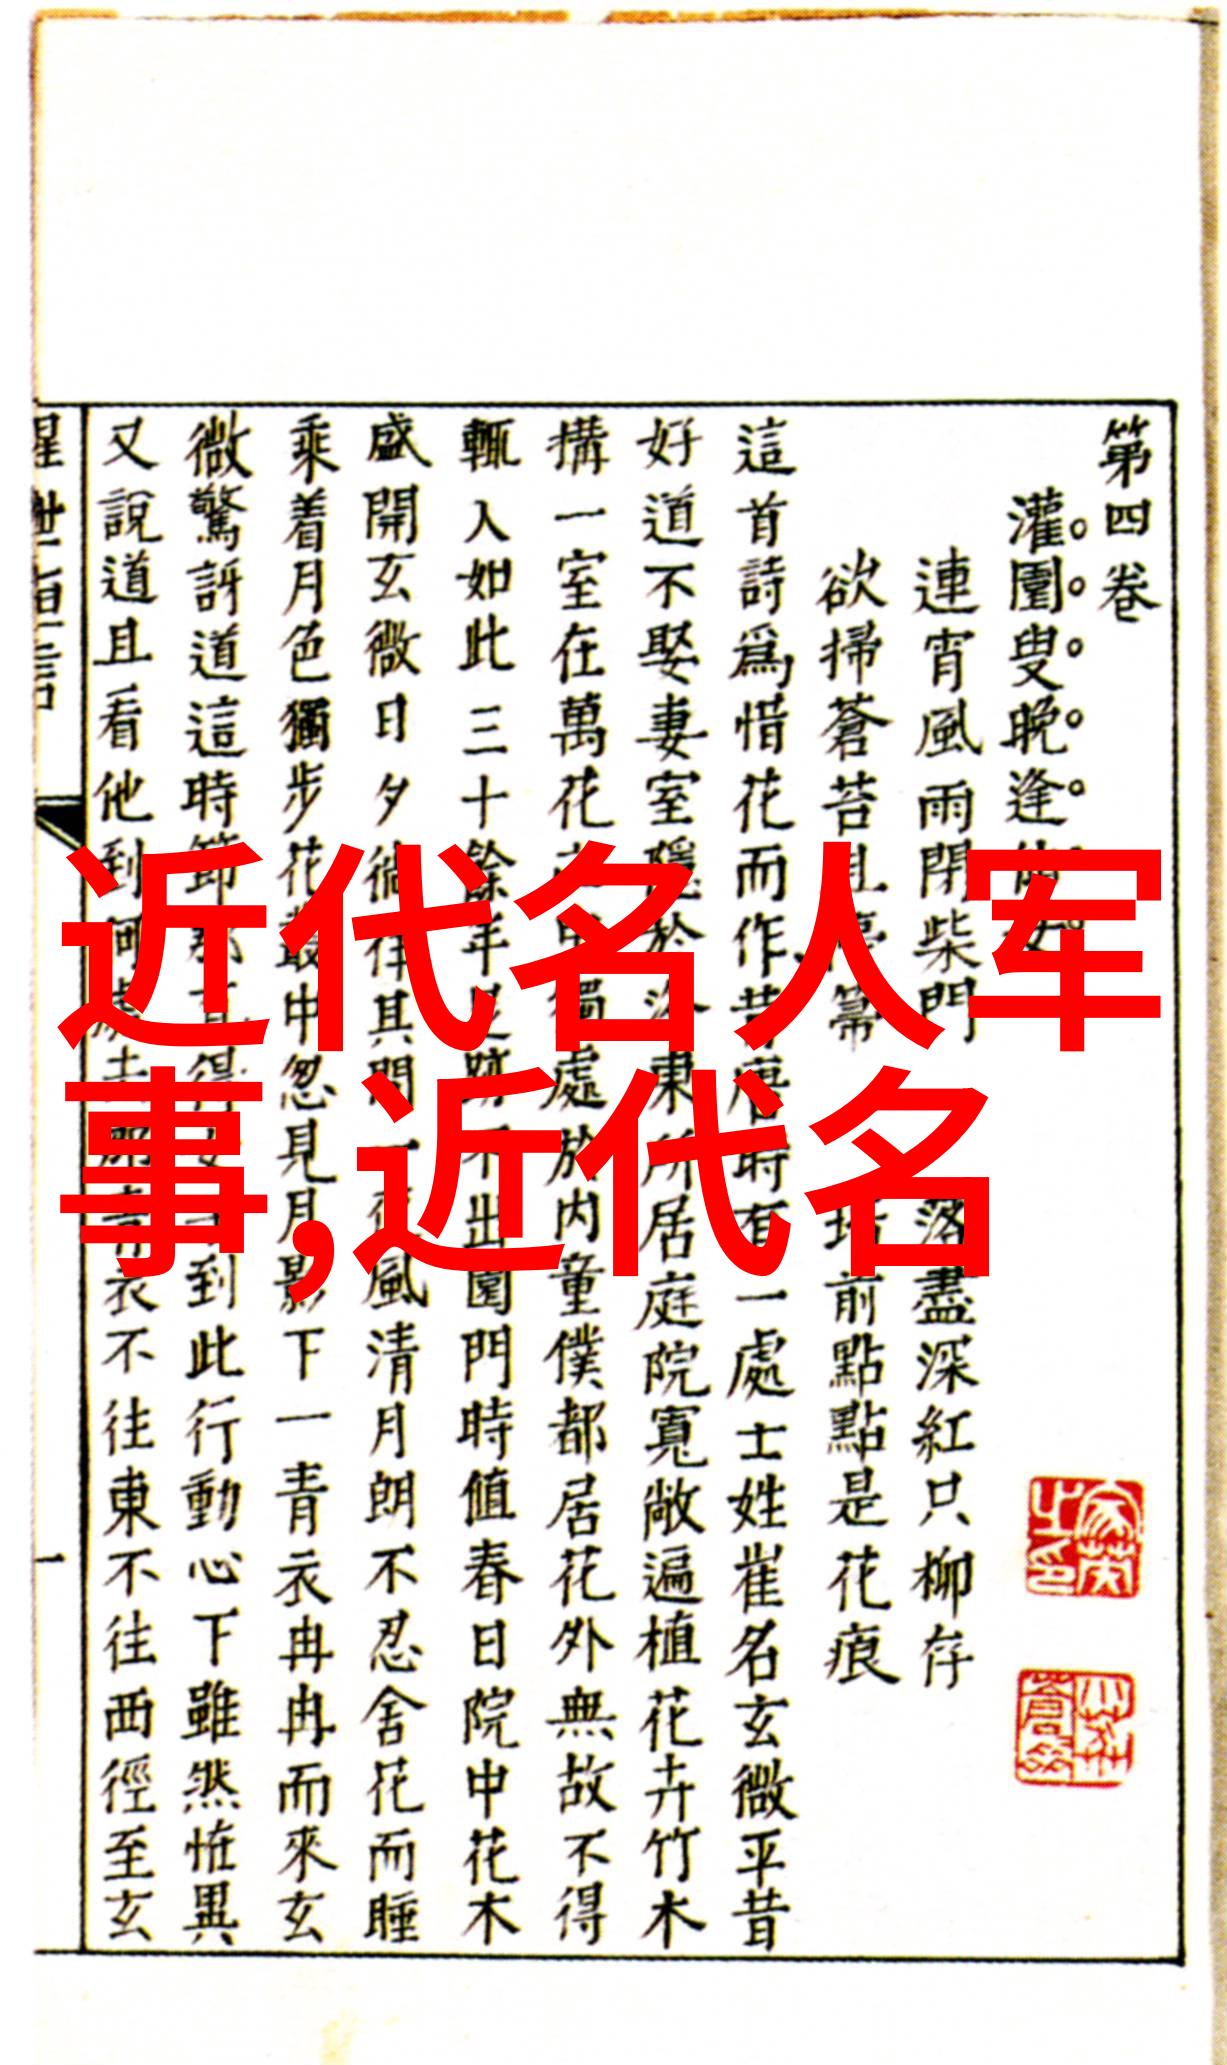 第四卷
灌園叟晚逢仙女
連宵風雨閉柴門 落盡深紅只柳存
欲掃蒼苔且停帚 堦前點點是花痕
這首詩爲惜花而作昔唐時有一處士姓崔名玄微平昔
好道不娶妻室隱於洛東所居庭院寬敞遍植花卉竹木
搆一室在萬花之中獨處於内童僕都居花外無故不得
輒入如此三十餘年足跡不出園門時值春日院中花木
盛開玄微日夕徜徉其間一夜風清月朗不忍舍花而睡
乘着月色獨步花叢中忽見月影下一青衣冉冉而來玄
微驚訝道這時節那有得女子到此行動心下雖然怪異
又說道且看他到何處去那青衣不往東不往西徑至玄
一
近代名人军
事,近代名